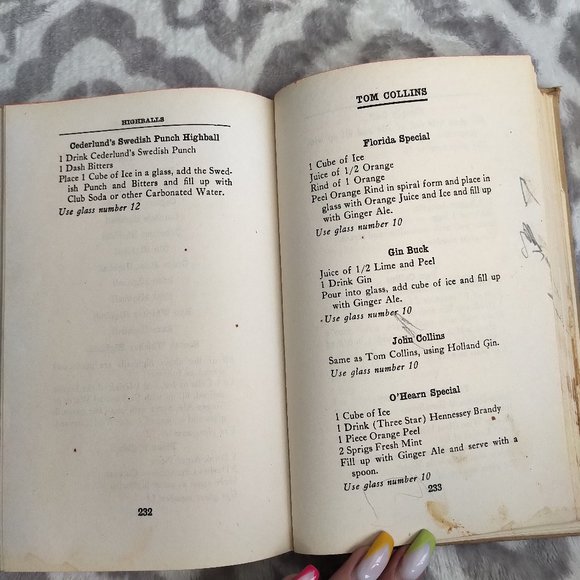 HIGHBALLS
Cederlund's Swedish Punch Highball
1 Drink Cederlund's Swedish Punch
1 Dash Bitters
Place 1 Cube of Ice in a glass, add the Swed-
ish Punch and Bitters and fill up with
Club Soda or other Carbonated Water.
Use glass number 12
232
TOM COLLINS
Florida Special
1 Cube of Ice
Juice of 1/2 Orange
Rind of 1 Orange
Peel Orange Rind in spiral form and place in
glass with Orange Juice and Ice and fill up
with Ginger Ale.
Use glass number 10
Gin Buck
Juice of 1/2 Lime and Peel
1 Drink Gin
Pour into glass, add cube of ice and fill up
with Ginger Ale.
Use glass number 10
John Collins
Same as Tom Collins, using Holland Gin.
Use glass number 10
O'Hearn Special
1 Cube of Ice
1 Drink (Three Star) Hennessey Brandy
1 Piece Orange Peel
2 Sprigs Fresh Mint
Fill up with Ginger Ale and serve with a
spoon.
Use glass number 10
233